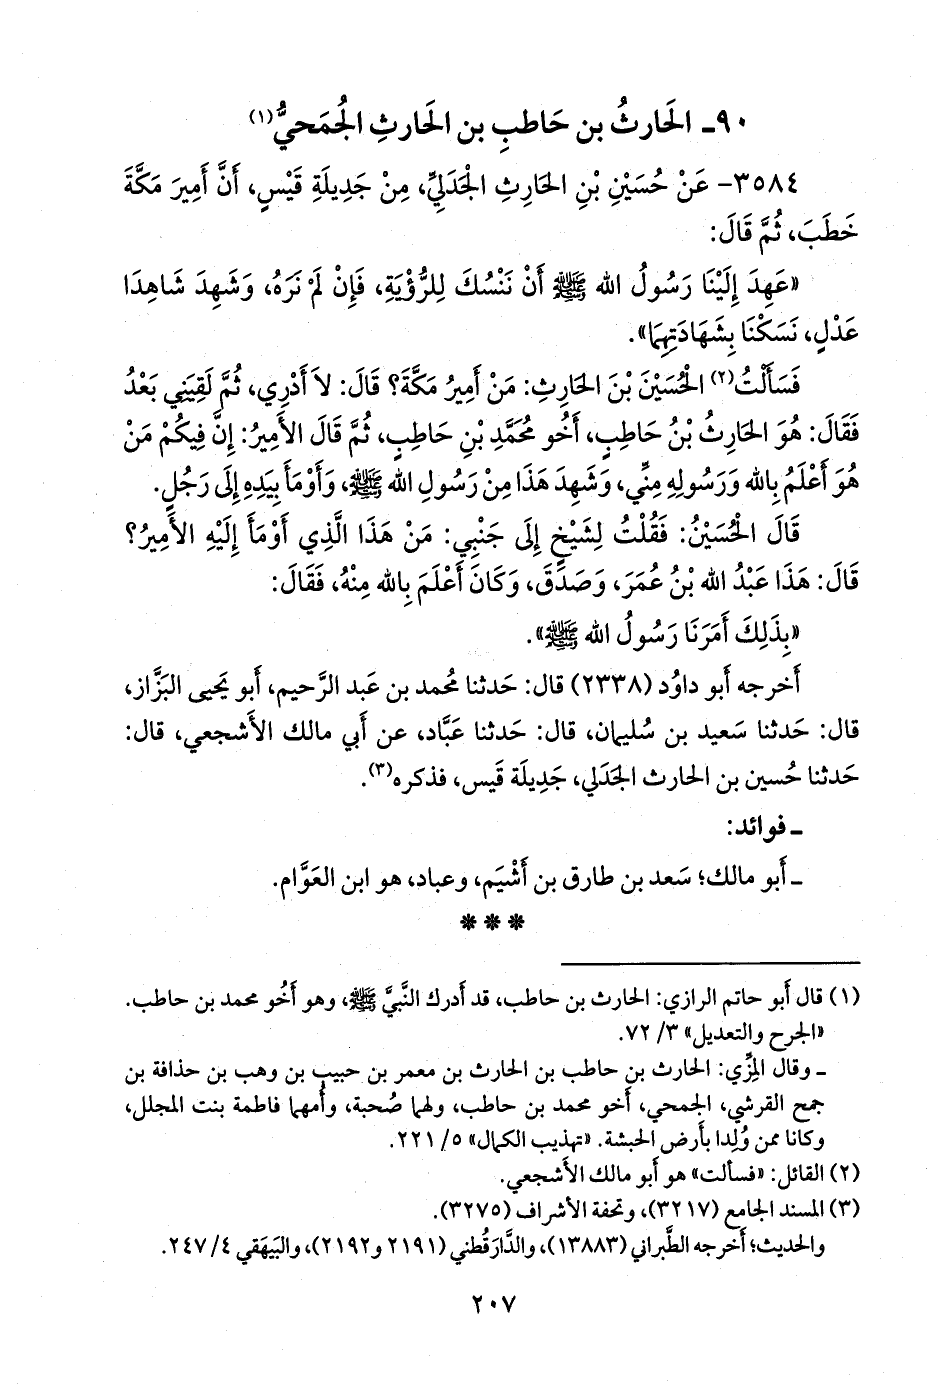 ٩٠ـ الحَارثُ بن حَاطبِ بن الحَارثِ الجُمَحيُّ(١)
٣٥٨٤- عَنْ حُسَيْنِ بْنِ الحَارِثِ الجَدَلِيِّ، مِنْ جَدِيلَةِ قَيْسٍ، أَنَّ أَمِيرَ مَكَّةَ
خَطَبَ، ثُمَّ قَالَ:
«عَهِدَ إِلَيْنَا رَسُولُ الله ﷺ أَنْ نَنْسُكَ لِلرُّؤْيَةِ، فَإِنْ لَمْ نَرَهُ، وَشَهِدَ شَاهِدَا
عَدْلٍ، نَسَكْنَا بِشَهَادَتِهِمَا».
فَسَأَلْتُ(٢) الحُسَيْنَ بْنَ الحَارِثِ: مَنْ أَمِيرُ مَكَّةَ؟ قَالَ: لاَ أَدْرِي، ثُمَّ لَقِيَنِي بَعْدُ
فَقَالَ: هُوَ الحَارِثُ بْنُ حَاطِبٍ، أَخُو مُحَمَّدِ بْنِ حَاطِبٍ، ثُمَّ قَالَ الأَمِيرُ: إِنَّ فِيكُمْ مَنْ
هُوَ أَعْلَمُ بِالله وَرَسُولِهِ مِنِّي، وَشَهِدَ هَذَا مِنْ رَسُولِ الله ﷺ، وَأَوْمَأَ بِيَدِهِ إِلَى رَجُلٍ.
قَالَ الحُسَيْنُ: فَقُلْتُ لِشَيْخٍ إِلَى جَنْبِي: مَنْ هَذَا الَّذِي أَوْمَأَ إِلَيْهِ الأَمِيرُ؟
قَالَ: هَذَا عَبْدُ الله بْنُ عُمَرَ، وَصَدَقَ، وَكَانَ أَعْلَمَ بِالله مِنْهُ، فَقَالَ:
«بِذَلِكَ أَمَرَنَا رَسُولُ الله ﷺ».
أَخرجه أَبو داوُد (٢٣٣٨) قال: حَدثنا مُحمد بن عَبد الرَّحيم، أَبو يَحيى البَزَّاز،
قال: حَدثنا سَعيد بن سُليمان، قال: حَدثنا عَبَّاد، عن أَبي مالك الأَشجعي، قال:
حَدثنا حُسين بن الحارث الجَدَلي، جَدِيلَة قَيس، فذكره(٣).
ـ فوائد:
ـ أَبو مالك؛ سَعد بن طارق بن أَشْيَم، وعباد، هو ابن العَوَّام.
* * *
(١) قال أَبو حاتم الرازي: الحارث بن حاطب، قد أَدرك النَّبيَّ ﷺ، وهو أَخُو محمد بن حاطب.
«الجرح والتعديل» ٣/ ٧٢.
ـ وقال المِزِّي: الحارث بن حاطب بن الحارث بن معمر بن حبيب بن وهب بن حذافة بن
جمح القرشي، الجمحي، أَخو محمد بن حاطب، ولهما صُحبة، وأُمهما فاطمة بنت المجلل،
وكانا ممن وُلِدا بأَرض الحبشة. «تهذيب الكمال» ٥/ ٢٢١.
(٢) القائل: «فسأَلت» هو أَبو مالك الأَشجعي.
(٣) المسند الجامع (٣٢١٧)، وتحفة الأشراف (٣٢٧٥).
والحديث؛ أَخرجه الطَّبراني (١٣٨٨٣)، والدَّارَقُطني (٢١٩١ و٢١٩٢)، والبَيهَقي ٤/ ٢٤٧.
٢٠٧